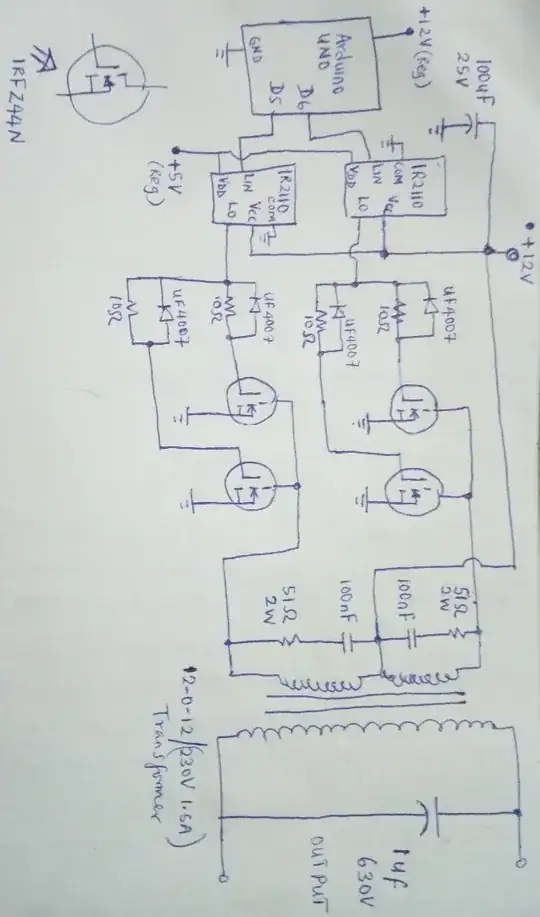 +12V (Reg)
Arduino
UNO
GND
D5
D6
100uF
25V
+12V
IR2110
COM
LIN
VDD
Vcc
LO
IR2110
COM
LIN
VDD
Vcc
LO
+5V
(Reg)
UF4007
10Ω
UF4007
10Ω
UF4007
10Ω
UF4007
10Ω
IRFZ44N
51Ω
2W
100nF
100nF
51Ω
2W
12-0-12/(230V 1.6A)
Transformer
1uf
630V
OUTPUT